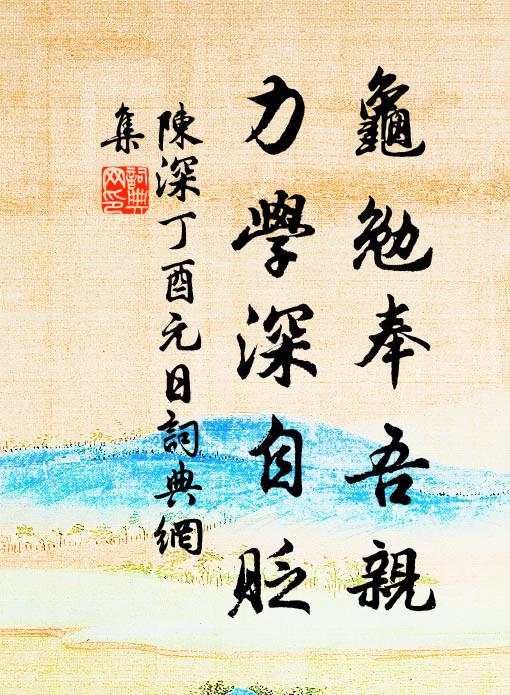 龜勉奉吾親
力學深自貶
陳深丁酉元日詞典網
集
詞典
网印